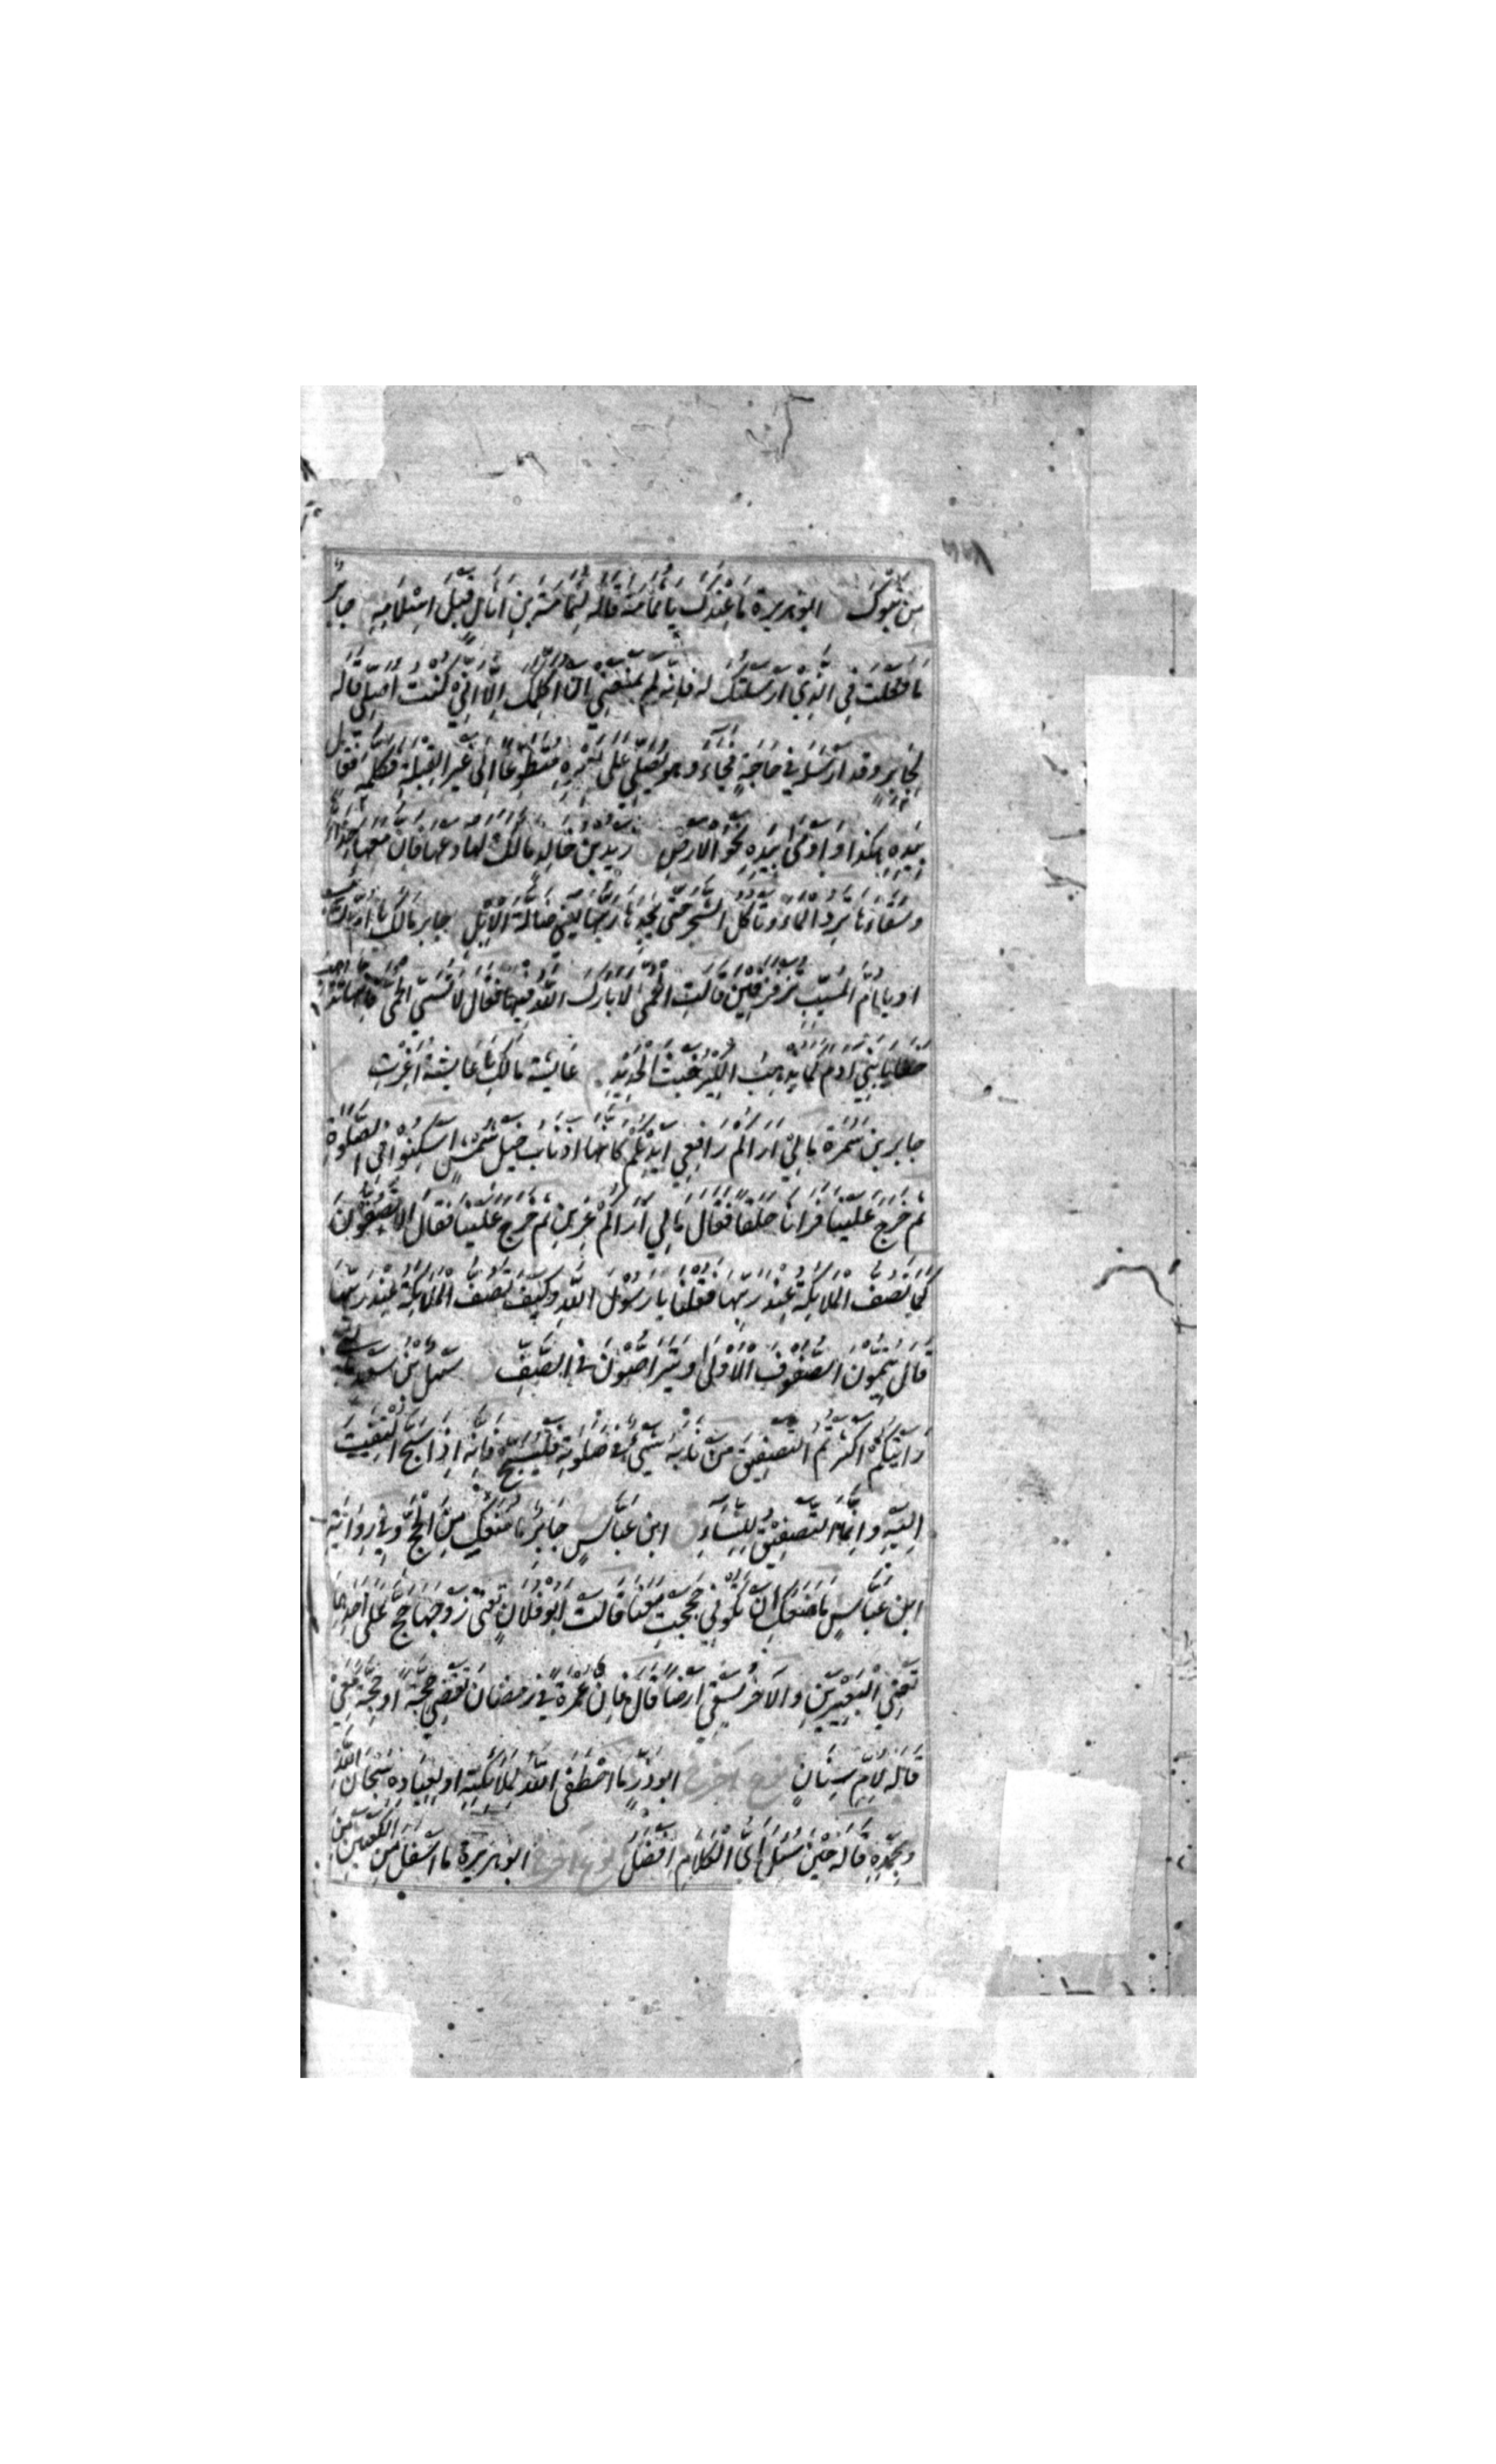 مِن تَبُوكَ ابو هريرة مَا عِنْدَكَ يَا ثُمَامَةُ قَالَهُ لِثُمَامَةَ بْنِ اُثَالٍ قَبْلَ اِسْلَامِهِ جَابِرٌ
مَا فَعَلْتَ فِي الَّذِي اَرْسَلْتُكَ لَهُ فَاِنَّهُ لَمْ يَمْنَعْنِي اَنْ اُكَلِّمَكَ اِلَّا اَنِّي كُنْتُ اُصَلِّي قَالَهُ
لِجَابِرٍ وَقَدْ اَرْسَلَهُ فِي حَاجَةٍ فَجَاءَ وَهُوَ يُصَلِّي عَلَى بَعِيْرِهِ مُتَطَوِّعًا اِلَى غَيْرِ الْقِبْلَةِ فَكَلَّمَهُ فَقَالَ
بِيَدِهِ هٰكَذَا وَ اَوْمٰى بِيَدِهِ نَحْوَ الْاَرْضِ زيد بن خَالِدٍ مَالَكَ وَلَهَا دَعْهَا فَاِنَّ مَعَهَا حِذَاءَهَا
وَسِقَاءَهَا تَرِدُ الْمَاءَ وَتَاْكُلُ الشَّجَرَ حَتَّى يَجِدَهَا رَبُّهَا يَعْنِي ضَالَّةَ الْاِبِلِ جابر مَالَكِ يَا اُمَّ السَّائِبِ
اَوْ يَا اُمَّ الْمُسَيَّبِ تُزَفْزِفِيْنَ قَالَتِ الْحُمّٰى لَا بَارَكَ اللّٰهُ فِيْهَا فَقَالَ لَا تَسُبِّي الْحُمّٰى فَاِنَّهَا تُذْهِبُ
خَطَايَا بَنِي اٰدَمَ كَمَا يُذْهِبُ الْكِيْرُ خَبَثَ الْحَدِيْدِ عَايشَة مَالَكِ يَا عَايِشَةُ اَغِرْتِ
جابر بن سَمُرَة مَا لِيْ اَرَاكُمْ رَافِعِي اَيْدِيْكُمْ كَاَنَّهَا اَذْنَابُ خَيْلٍ شُمْسٍ اُسْكُنُوْا فِي الصَّلٰوةِ
ثُمَّ خَرَجَ عَلَيْنَا فَرَاٰنَا حِلَقًا فَقَالَ مَا لِي اَرَاكُمْ عِزِيْنَ ثُمَّ خَرَجَ عَلَيْنَا فَقَالَ اَلَا تَصُفُّوْنَ
كَمَا تَصُفُّ الْمَلَائِكَةُ عِنْدَ رَبِّهَا فَقُلْنَا يَا رَسُوْلَ اللّٰهِ وَكَيْفَ تَصُفُّ الْمَلَائِكَةُ عِنْدَ رَبِّهَا
قَالَ يُتِمُّوْنَ الصُّفُوْفَ الْاُوْلٰى وَيَتَرَاصُّوْنَ فِي الصَّفِّ سَهْلُ بْنُ سَعْدٍ مَا لِي
رَاَيْتُكُمْ اَكْثَرْتُمُ التَّصْفِيْقَ مَنْ نَابَهُ شَيْءٌ فِي صَلٰوتِهِ فَلْيُسَبِّحْ فَاِنَّهُ اِذَا سَبَّحَ الْتُفِتَ
اِلَيْهِ وَاِنَّمَا التَّصْفِيْقُ لِلنِّسَاءِ ابن عَبَّاسٍ جَابِرٌ مَا مَنَعَكِ مِنَ الْحَجِّ وَفِي رِوَايَةِ
ابن عَبَّاسٍ مَا مَنَعَكِ اَنْ تَكُوْنِي حَجَجْتِ مَعَنَا قَالَتْ اَبُو فُلَانٍ تَعْنِي زَوْجَهَا حَجَّ عَلَى اَحَدِهِمَا
تَعْنِي الْبَعِيْرَيْنِ وَالْاٰخَرُ يَسْقِي اَرْضًا قَالَ فَاِنَّ عُمْرَةً فِي رَمَضَانَ تَقْضِي حَجَّةً اَوْ حَجَّةً مَعِيْ
قَالَهُ لِاُمِّ سِنَانٍ نوع اخر ابو ذَرٍّ مَا اصْطَفَى اللّٰهُ لِمَلَائِكَتِهِ اَوْ لِعِبَادِهِ سُبْحَانَ اللّٰهِ
وَبِحَمْدِهِ قَالَهُ حِيْنَ سُئِلَ اَيُّ الْكَلَامِ اَفْضَلُ نوع اخر ابو هريرة مَا اَسْفَلَ مِنَ الْكَعْبَيْنِ مِنَ